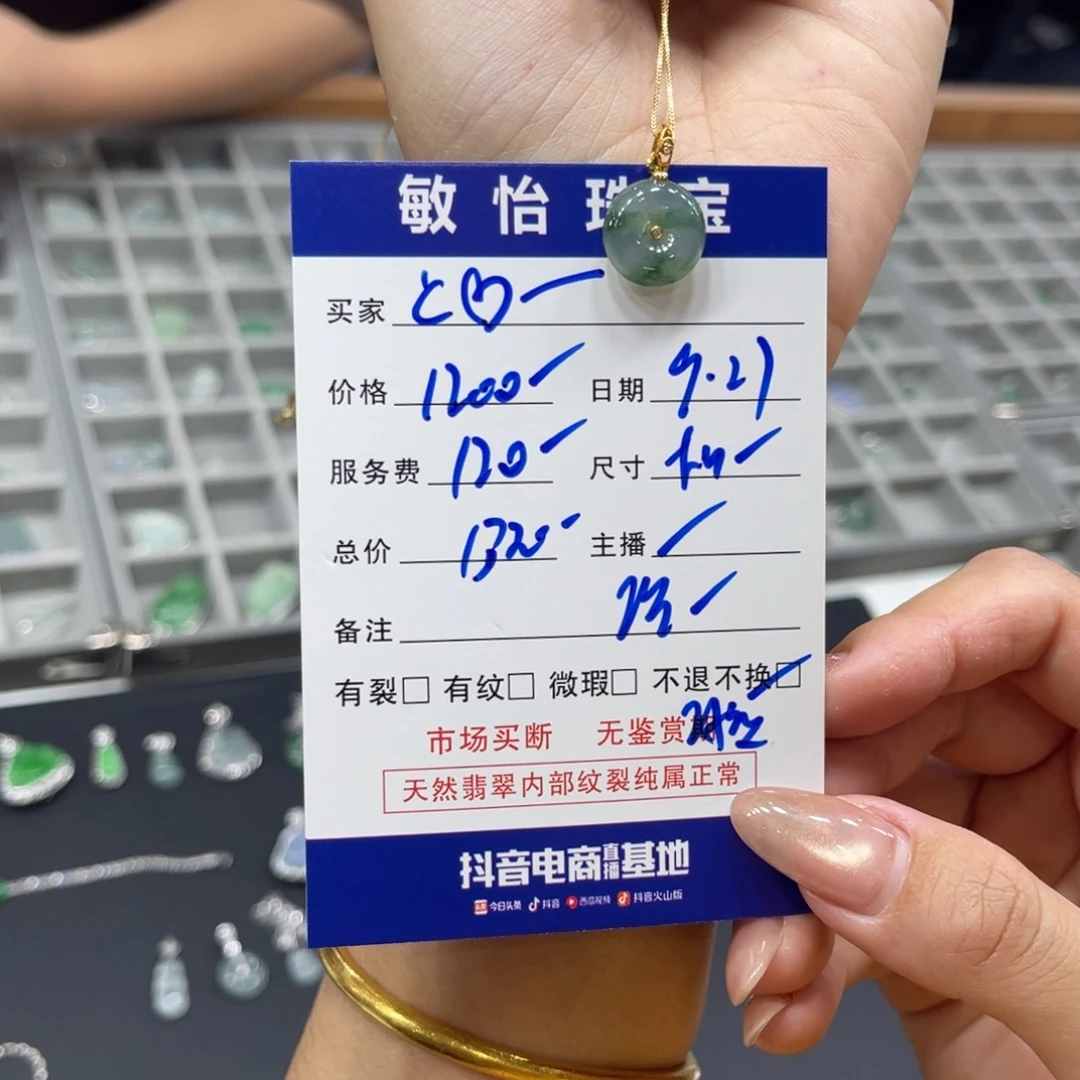 敏怡珠宝
买家 と♡
价格 1200 日期 9.27
服务费 120 尺寸
总价 1320 主播
备注
有裂□ 有纹□ 微瑕□ 不退不换□
市场买断 无鉴赏期
天然翡翠内部纹裂纯属正常
抖音电商直播基地
今日头条 抖音 西瓜视频 抖音火山版